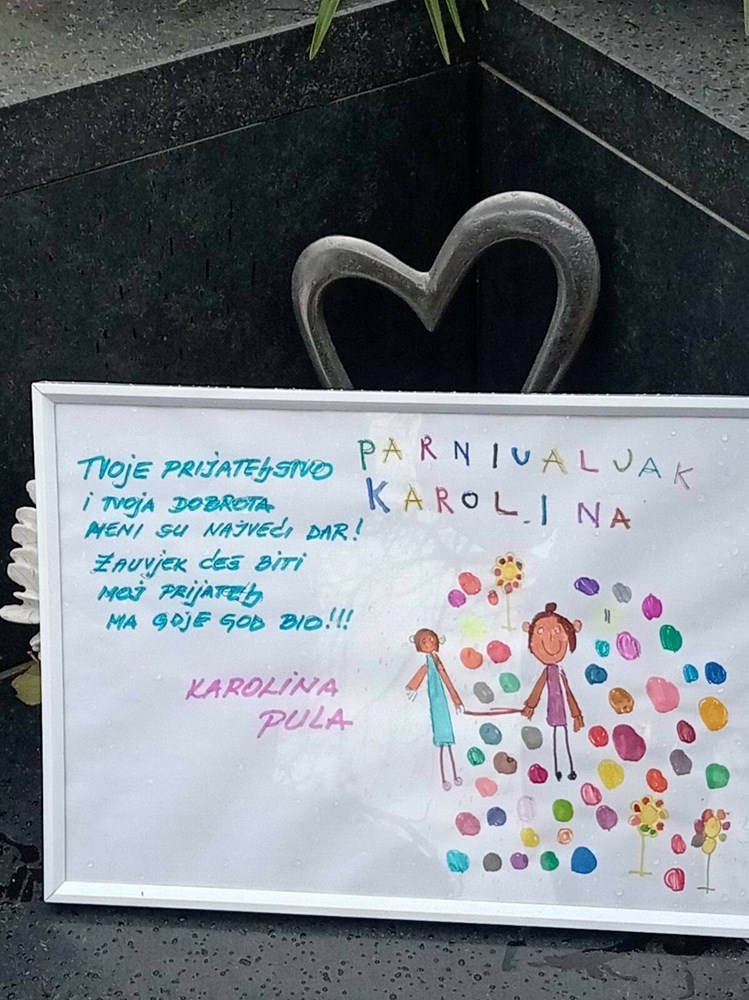 TVOJE PRIJATEљSTVO
i TVOJA DOBROTA
MENI SU NAJVEĆI DAR!
ZAUVJEK ĆEŠ BITI
MOJ PRIJATEљ
MA GDJE GOD BIO!!!
KAROLINA
PULA
PARNIVALJAK
KAROLINA